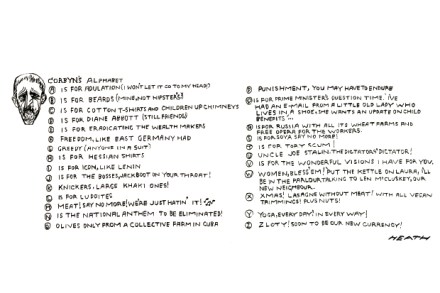 CORBYN'S ALPHABET
A IS FOR ADULATION (I WON'T LET IT GO TO MY HEAD)
B IS FOR BEARDS (MINE, NOT HIPSTERS!)
C IS FOR COTTON T-SHIRTS AND CHILDREN UP CHIMNEYS
D IS FOR DIANE ABBOTT (STILL FRIENDS)
E IS FOR ERADICATING THE WEALTH MAKERS
F FREEDOM, LIKE EAST GERMANY HAD
G GREEDY (ANYONE IN A SUIT)
H IS FOR HESSIAN SHIRTS
I IS FOR ICON, LIKE LENIN
J IS FOR THE BOSSES, JACKBOOT IN YOUR THROAT!
K KNICKERS, LARGE KHAKI ONES!
L IS FOR LUDDITES
M MEAT! SAY NO MORE! WE'RE JUST HATIN' IT!
N IS THE NATIONAL ANTHEM TO BE ELIMINATED!
O OLIVES ONLY FROM A COLLECTIVE FARM IN CUBA
P PUNISHMENT, YOU MAY HAVE TO ENDURE
Q IS FOR PRIME MINISTER'S QUESTION TIME. I'VE
HAD AN E-MAIL FROM A LITTLE OLD LADY WHO
LIVES IN A SHOE, SHE WANTS AN UPDATE ON CHILD
BENEFITS
R IS FOR RUSSIA WITH ALL ITS WHEAT FARMS AND
FREE OPERA FOR THE WORKERS.
S IS FOR SOYA SAY NO MORE!
T IS FOR TORY SCUM!
U UNCLE JOE STALIN, THE DICTATOR'S DICTATOR!
V IS FOR THE WONDERFUL VISIONS I HAVE FOR YOU.
W WOMEN, BLESS 'EM! PUT THE KETTLE ON LAURA, I'LL
BE IN THE PARLOUR TALKING TO LEN MCCLUSKEY, OUR
NEW NEIGHBOUR.
X XMAS! LASAGNE WITHOUT MEAT! WITH ALL VEGAN
TRIMMINGS! PLUS NUTS!
Y YOGA, EVERY DAY! IN EVERY WAY!
Z ZLOTY! SOON TO BE OUR NEW CURRENCY!
HEATH